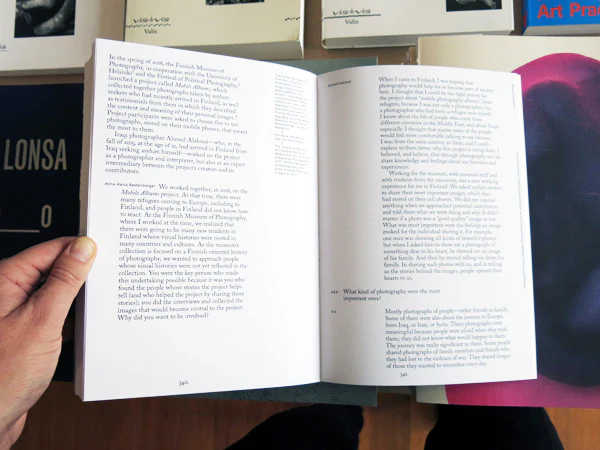 vis-à-vis
Valts
vis-à-vis
Valts
Art Pra
LONSA
O
In the spring of 2016, the Finnish Museum of
Photography, in cooperation with the University of
Helsinki and the Festival of Political Photography,
launched a project called Mobile Albums, which
collected together photographs taken by asylum
seekers who had recently arrived in Finland, as well
as testimonials from them in which they described
the content and meaning of their personal images.
Project participants were asked to choose five to ten
photographs, stored on their mobile phones, that meant
the most to them.
Iraqi photographer Ahmed Alalousi—who, in the
fall of 2015, at the age of 21, had arrived in Finland from
Iraq seeking asylum himself—worked on the project
as a photographer and interpreter, but also as an expert
intermediary between the project's creators and its
contributors.
We worked together, in 2016, on the
Mobile Albums project. At that time, there were
many refugees coming to Europe, including to
Finland, and people in Finland did not know how
to react. At the Finnish Museum of Photography,
where I worked at the time, we realized that
there were going to be many new residents in
Finland whose visual histories were rooted in
many countries and cultures. As the museum's
collection is focused on a Finnish oriented history
of photography, we wanted to approach people
whose visual histories were not yet reflected in the
collection. You were the key person who made
this undertaking possible because it was you who
found the people whose stories the project helps
tell (and who helped the project by sharing those
stories); you did the interviews and collected the
images that would become central to the project.
Why did you want to be involved?
340.
When I came to Finland, I was hoping that
photography would help me to become part of society
here. I thought that I could be the right person for
the project about "mobile photography albums" from
refugees, because I was not only a photographer, but
a photographer who had been a refugee once myself.
I know about the life of people who came from
different countries in the Middle East, and about Iraqis
especially. I thought that maybe some of the people
would feel more comfortable talking to me because
I was from the same country as them, and I could
explain to them better why this project is being done. I
believed, and believe, that through photography we can
share knowledge and feelings about our histories and
experiences.
Working for the museum, with museum staff and
with students from the university, was a new working
experience for me in Finland. We asked asylum seekers
to share their most important images, which they
had stored on their cell phones. We did not intend
anything when we approached potential contributors
and told them what we were doing and why. It didn't
matter if a photo was a "good quality" image or not.
What was most important were the feelings an image
evoked for the individual sharing it. For example,
one man was showing all kinds of beautiful photos,
but when I asked him to show me a photograph of
something dear to his heart, he showed me an image
of his family. And then he started telling me about his
family. In sharing such photos with us, and in telling
us the stories behind the images, people opened their
hearts to us.
What kind of photographs were the most
important ones?
Mostly photographs of people—either friends or family.
Some of them were also about the journey to Europe,
from Iraq, or Iran, or Syria. These photographs were
meaningful because people were afraid when they took
them; they did not know what would happen to them.
The journey was really significant to them. Some people
shared photographs of family members and friends who
they had lost to the violence of war. They shared images
of those they wanted to remember every day.